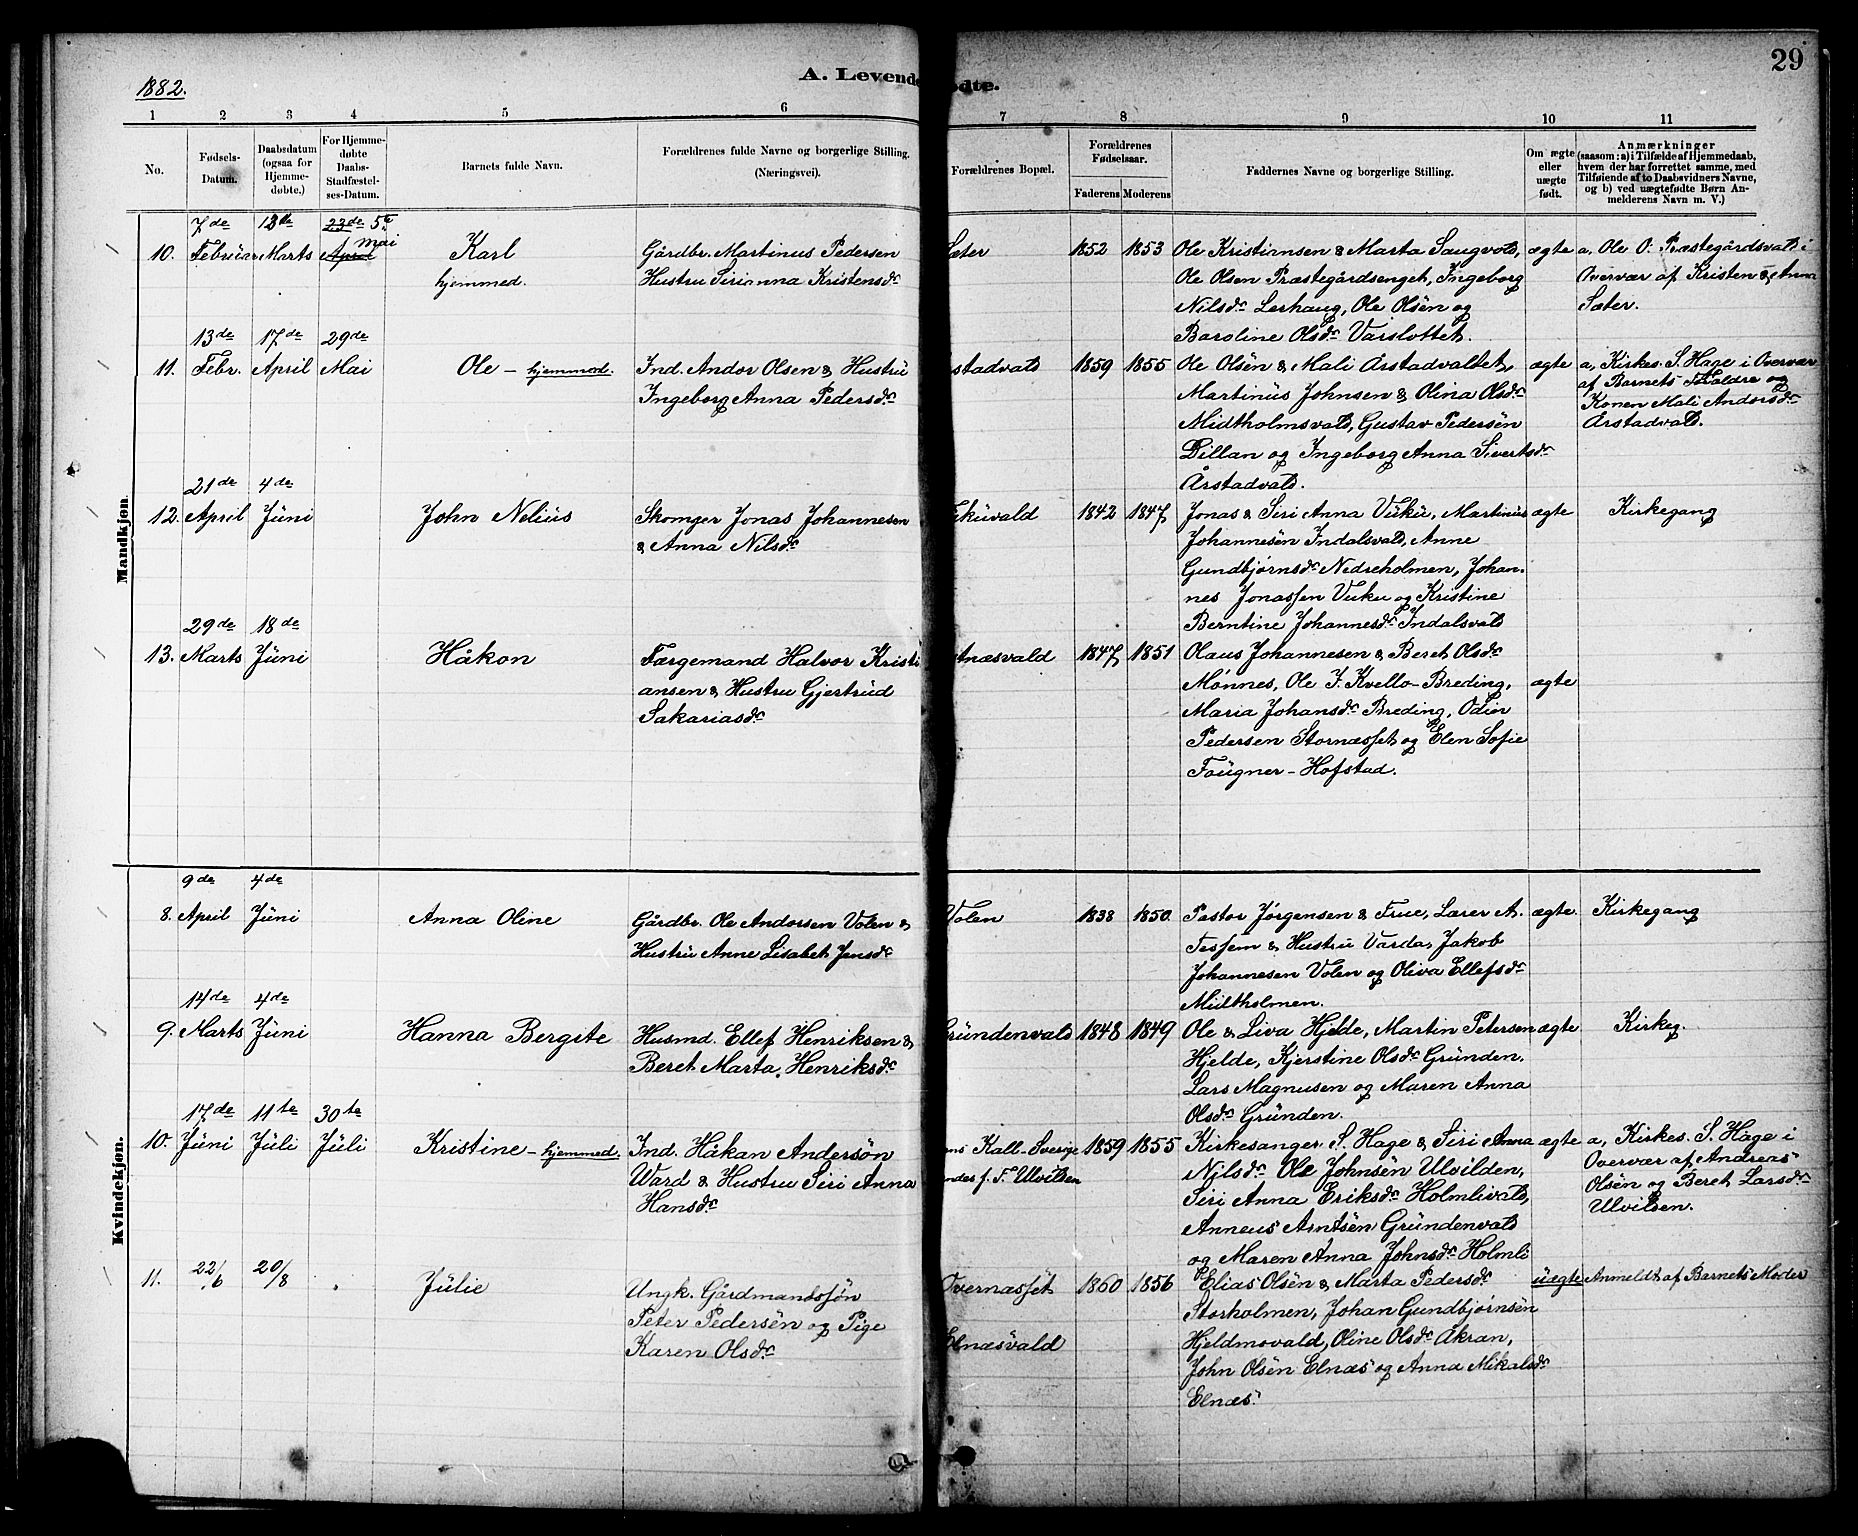 1882.
A. Levende
ødte.
29
1 2 3 4 5 6 7 8 9 10 11
No.
Fødsels-
Datum.
Daabsdatum
(ogsaa for
Hjemme-
døbte.)
For Hjemme-
døbte
Daabs-
Stadfæstel-
ses-Datum.
Barnets fulde Navn.
Forældrenes fulde Navne og borgerlige Stilling.
(Næringsvei).
Forældrenes Bopæl.
Forældrenes
Fødselsaar.
Faderens Moderens
Faddernes Navne og borgerlige Stilling.
Om ægte
eller
uægte
født.
Anmærkninger
(saasom: a) i Tilfælde af Hjemmedaab,
hvem der har forrettet samme, med
Tilføiende af to Daabsvidners Navne,
og b) ved uægtefødte Børn An-
melderens Navn m. V.)
Mandkjøn.
7de 13de 23de 5te
10. Februar Marts April Mai
Karl
hjemmed.
Gårdbr. Martinus Pedersen
Hustru Sirianna Kristensdr
Sæter
1852 1853
Ole Kristiansen & Marta Saugvold,
Ole Olsen Præstegårdsenget, Ingeborg
Nilsdr Lerhaug, Ole Olsen og
Baroline Olsdr Varslottet.
ægte
a, Ole O. Præstegårdsvald i
Overvær af Kristen & Anna
Sæter.
13de 17de 29de
11. Febr. April Mai
Ole - hjemmed.
Ind. Andor Olsen & Hustru
Ingeborg Anna Pedersdr
rstadvald
1859 1855
Ole Olsen & Mali Årstadvaldet,
Martinus Johnsen & Olina Olsdr
Midtholmsvald, Gustav Pedersen
Dillan og Ingeborg Anna Sivertsdr
Årstadvald.
ægte
a, Kirkes. S. Hage i Overvær
af Barnets Forældre og
Konen Mali Andorsdr
Årstadvald.
21de 4de
12. April Juni
John Nelius
Skomger Jonas Johannesen
& Anna Nilsdr
ukuvald
1842 1847
Jonas & Siri Anna Vuku, Martinus
Johannesen Indalsvald, Anne
Gundbjørnsdr Nedreholmen, Johan-
nes Jonassen Vuku og Kristine
Berntine Johannesdr Indalsvald
ægte
Kirkegang
29de 18de
13. Marts Juni
Håkon
Færgemand Halvor Kristi
ansen & Hustru Gjertrud
Sakariasdr
tnæsvald
1847 1851
Olaus Johannesen & Beret Olsdr
Mønnes, Ole J. Kvello-Breding,
Maria Johansdr Breding, Odin
Pedersen Stornæsset og Elen Sofie
Fougner-Hofstad.
ægte
Kvindekjøn.
9de 4de
8. April Juni
Anna Oline
Gårdbr. Ole Andorsen Volen &
Hustru Anne Lisabet Jensdr
Volen
1838 1850
Pastor Jørgensen & Frue, Lærer A.
Tessem & Hustru Varda, Jakob
Johannesen Volen og Oliva Ellefsdr
Midtholmen.
ægte.
Kirkegang
14de 4de
9. Marts Juni
Hanna Bergite
Husmd. Ellef Henriksen &
Beret Marta Henriksdr
Gründenvald
1848 1849
Ole & Liva Hjelde, Martin Petersen
Hjelde, Kjerstine Olsdr Grunden,
Lars Magnusen og Maren Anna
Olsdr Grunden.
ægte
Kirkeg.
17de 11te 30te
10. Juni Juli Juli
Kristine - hjemmed.
Ind. Håkan Andersøn
Ward & Hustru Siri Anna
Hansdr
ens Kall-Sverige
ndes f. T. Ulvilsen
1859 1855
Kirkesanger S. Hage & Siri Anna
Nilsdr Ole Johnsen Ulvilden,
Siri Anna Eriksdr Holmlivald,
Anneus Arntsen Grundenvald
og Maren Anna Johnsdr Holmli
ægte
a, Kirkes. S. Hage i
Overvær af Andreas
Olsen og Beret Larsdr
Ulvilsen.
11. 22/6 20/8 "
Julie
Ungk. Gårdmandssøn
Peter Pedersen og Pige
Karen Olsdr
Overnæsset
Elnæsvald
1860 1856
Elias Olsen & Marta Pedersdr
Storholmen, Johan Gundbjørnsen
Hjeldmovald, Oline Olsdr Åkran,
John Olsen Elnæs og Anna Mikalsdr
Elnæs.
uægte
Anmeldt af Barnets Moder